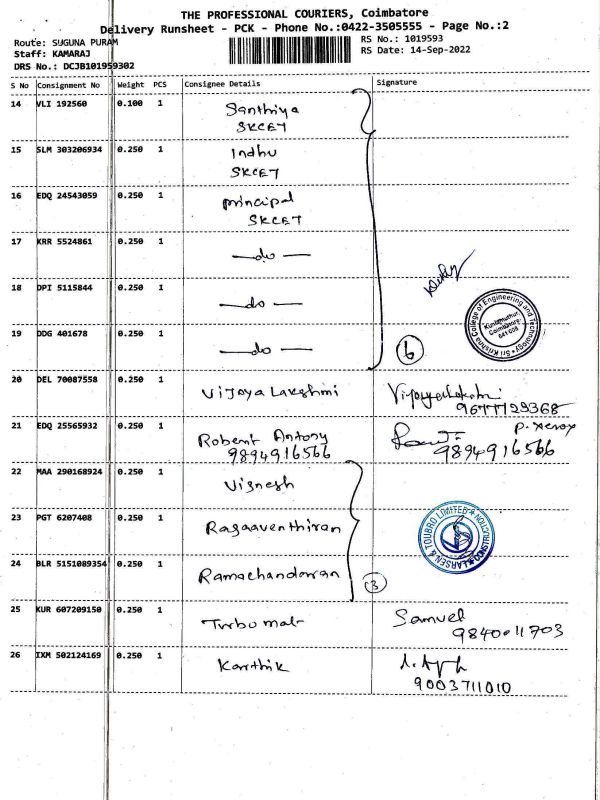 THE PROFESSIONAL COURIERS, Coimbatore
Delivery Runsheet - PCK - Phone No.:0422-3505555 - Page No.:2
Route: SUGUNA PURAM
RS No.: 1019593
Staff: KAMARAJ
RS Date: 14-Sep-2022
DRS No.: DCJB101959302
S No Consignment No Weight PCS Consignee Details Signature
14 VLI 192560 0.100 1 Santhiya
SKCET
15 SLM 303206934 0.250 1 Indhu
SKCET
16 EDQ 24543059 0.250 1 principal
SKCET
17 KRR 5524861 0.250 1 —do—
18 DPI 5115844 0.250 1 —do—
Sri Krishna College of Engineering and Technology
Kuniamuthur
Coimbatore
641 008
19 DDG 401678 0.250 1 —do— 6
20 DEL 70087558 0.250 1 Vijaya Lakshmi Vijayalakshmi
9677129368
21 EDQ 25565932 0.250 1 Robert Antony P. Xerox
9894916566 9894916566
22 MAA 290168924 0.250 1 Vignesh
23 PGT 6207408 0.250 1 Ragaaventhiran
LARSEN & TOUBRO LIMITED
CONSTRUCTION
24 BLR 5151089354 0.250 1 Ramachandran 3
25 KUR 607209150 0.250 1 Samuel
9840011703
26 IXM 502124169 0.250 1 Karthik
9003711010